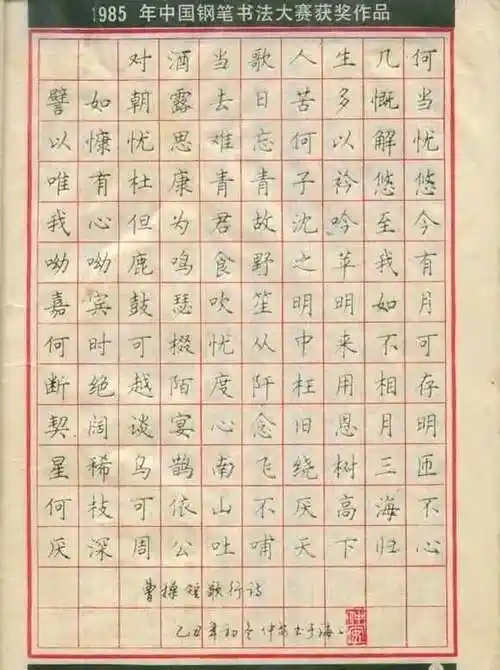 1985 年中国钢笔书法大赛获奖作品
对酒当歌人生几何
譬如朝露去日苦多慨当
以慷忧思难忘何以解忧
唯有杜康青青子衿悠悠
我心但为君故沈吟至今
呦呦鹿鸣食野之苹我有
嘉宾鼓瑟吹笙明明如月
何时可掇忧从中来不可
断绝越陌度阡枉用相存
契阔谈宴心念旧恩月明
星稀乌鹊南飞绕树三匝
何枝可依山不厌高海不
厌深周公吐哺天下归心
曹操短歌行诗
乙丑年初冬仲安书于海